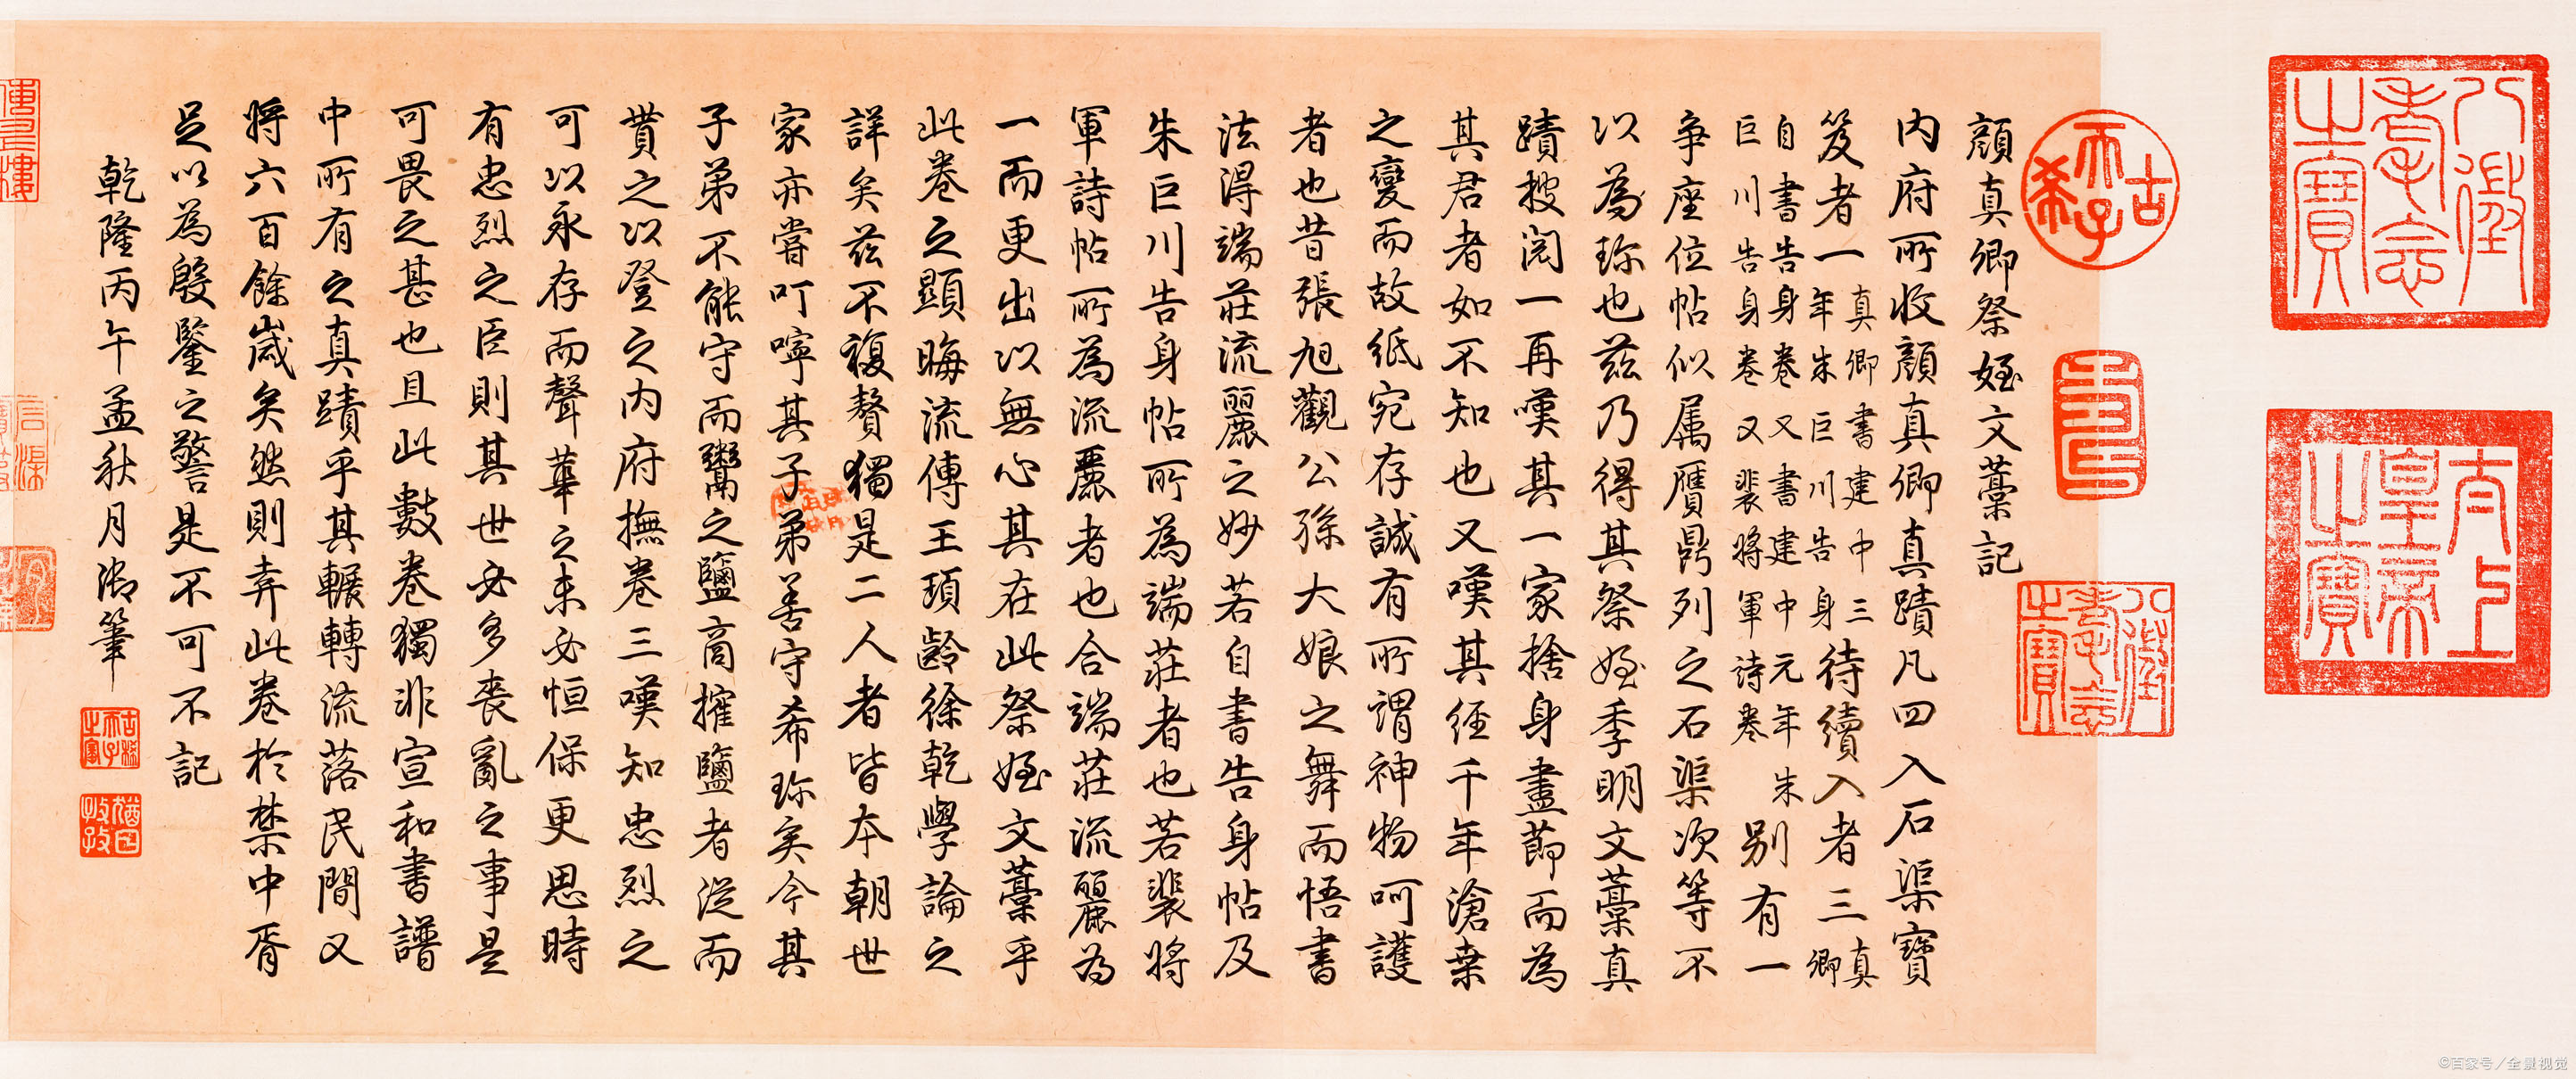 八徵耄念之寶
太上皇帝之寶
古希天子
壽
八徵耄念之寶
顏真卿祭姪文藁記
內府所收顏真卿真蹟凡四入石渠寶
笈者一真卿書建中三年朱巨川告身待續入者三真卿
自書告身卷又書建中元年朱巨川告身卷又裴將軍詩卷別有一
爭座位帖似屬贋鼎列之石渠次等不
以為珎也茲乃得其祭姪季明文藁真
蹟披閱一再嘆其一家捨身盡節而為
其君者如不知也又嘆其經千年滄桑
之變而故紙宛存誠有所謂神物呵護
者也昔張旭觀公孫大娘之舞而悟書
法得端莊流麗之妙若自書告身帖及
朱巨川告身帖所為端莊者也若裴將
軍詩帖所為流麗者也合端莊流麗為
一而更出以無心其在此祭姪文藁乎
此卷之顯晦流傳王頊齡徐乾學論之
詳矣茲不複贅獨是二人者皆本朝世
家亦嘗叮嚀其子弟善守希珎矣今其
子弟不能守而鬻之鹽商搉鹽者從而
貰之以登之內府撫卷三嘆知忠烈之
可以永存而聲華之未必恒保更思時
有忠烈之臣則其世必多喪亂之事是
可畏之甚也且此數卷獨非宣和書譜
中所有之真蹟乎其輾轉流落民間又
將六百餘歲矣然則弆此卷於禁中胥
足以為殷鑒之警是不可不記
乾隆丙午孟秋月御筆
古希天子之寶
猶日孜孜
©百家号／全景视觉